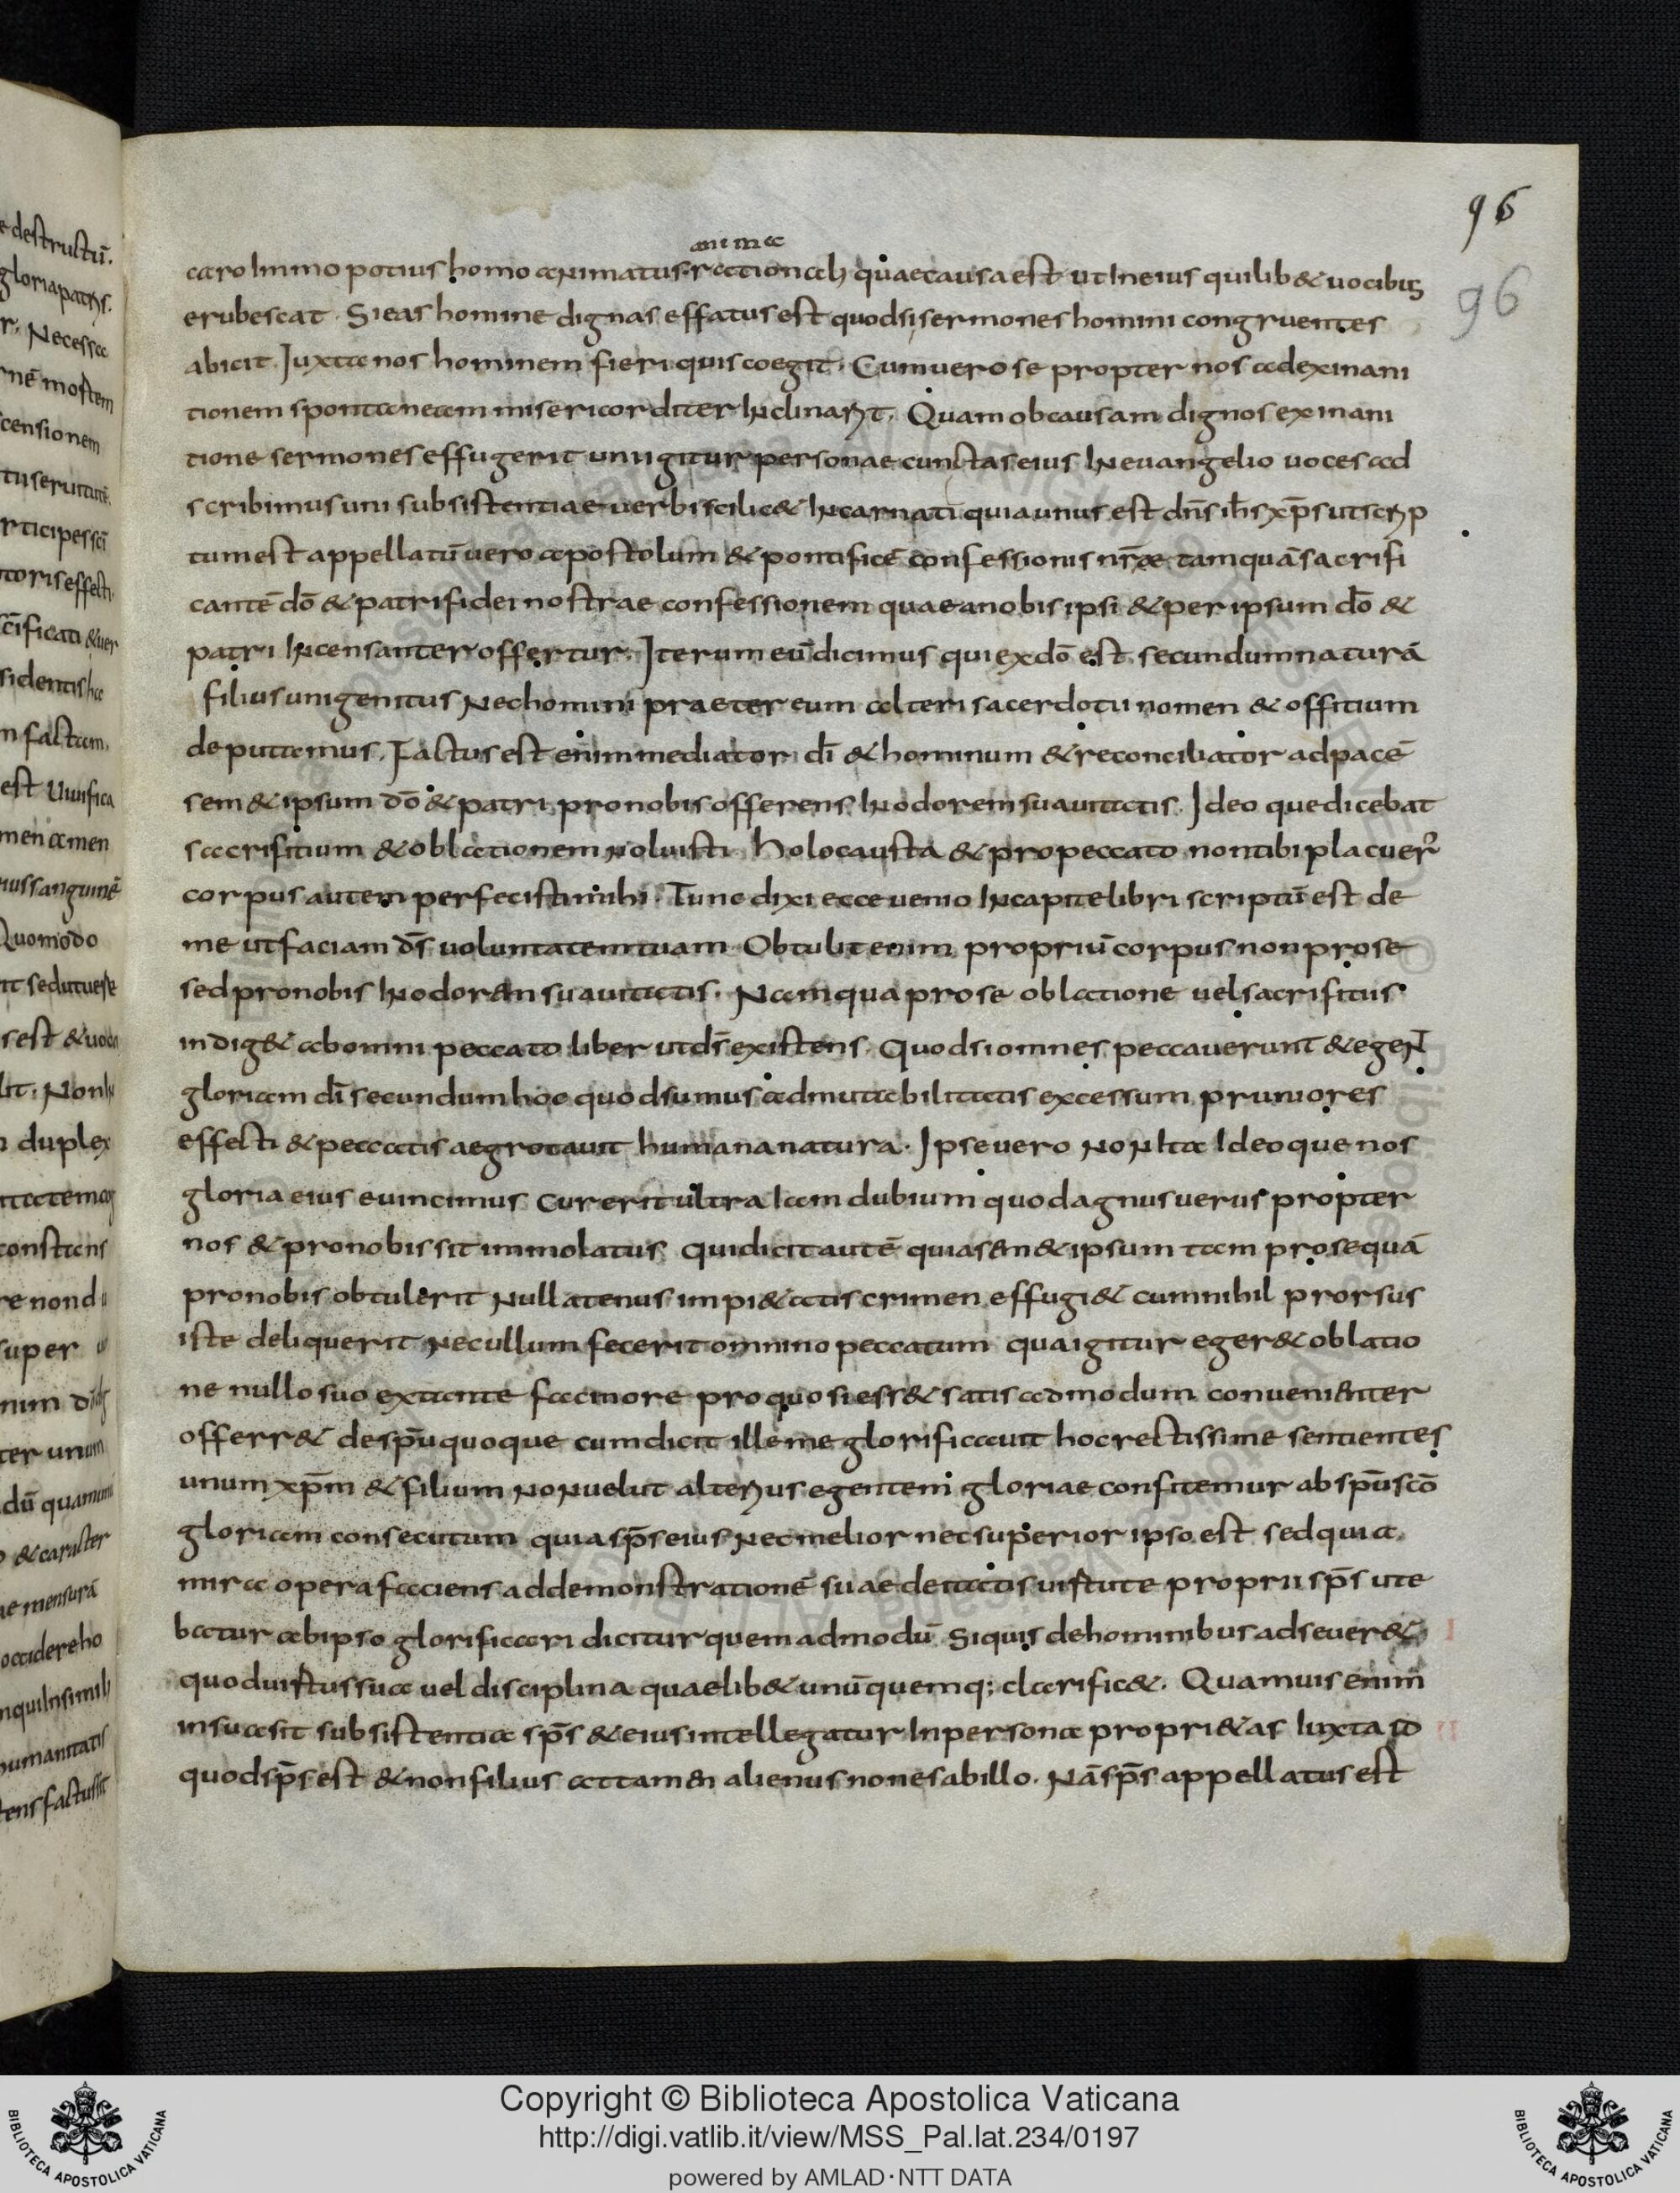 96
96
animae
caro Immo potius homo animatus rationali quae causa est ut In eius quilib& uocibus
erubescat. Si eas homine dignas effatus est quod si sermones homini congruentes
abicit. Juxta nos hominem fieri quis coegit. Cum uero se propter nos ad exinani
tionem spontaneam misericorditer Inclinarit. Quam ob causam dignos exinani
tione sermones effugerit uni igitur personae cunctas eius In euangelio uoces ad
scribimus uni subsistentiae uerbi scilic& Incarnati quia unus est dn̄s ih̄s xp̄s ut scrip
tum est appellatū uero apostolum & pontificē confessionis nr̄ae tamquā sacrifi
cantē dō & patri fidei nostrae confessionem quae a nobis ipsi & per ipsum dō &
patri Incensanter offertur. Iterum eū dicimus qui ex dō est secundum naturā
filius unigenitus Nec homini praeter eum alteri sacerdotii nomen & offitium
deputamus. Factus est enim mediator dī & hominum & reconciliator ad pacē
sem& ipsum dō & patri pro nobis offerens In odorem suauitatis. Ideoque dicebat
sacrifitium & oblationem Noluisti. holocausta & pro peccato non tibi placuer̄
corpus autem perfecisti mihi. Tunc dixi ecce uenio In capite libri scriptū est de
me ut faciam ds̄ uoluntatem tuam. Obtulit enim propriū corpus non pro se
sed pro nobis In odorem suauitatis. Nam qua pro se oblatione uel sacrifitus
indig& ab omni peccato liber ut ds̄ existens. Quod si omnes peccauerunt & egeNT
gloriam dī secundum hoc quod sumus ad mutabilitatis excessum pruniores
effecti & peccatis aegrotauit humana natura. Ipse uero NoN Ita Ideoque nos
gloria eius euincimus Cur erit ultra Iam dubium quod agnus uerus propter
nos & pro nobis sit immolatus. qui dicit autē quia sem& ipsum tam pro se quā
pro nobis obtulerit Nullatenus impi&atis crimen effugi& cum nihil prorsus
iste deliquerit Nec ullum fecerit omnino peccatum qua igitur eger& oblatio
ne nullo suo extante facinore pro quo si ess& satis admodum conuenienter
offerr& de sp̄u quoque cum dicit ille me glorificauit hoc rectissime sentientes
unum xp̄m & filium NoN uelut alterius egentem gloriae confitemur ab sp̄u scō
gloriam consecutum quia sp̄s eius Nec melior nec superior ipso est sed quia
mira opera faciens ad demonstrationē suae deitatis uirtute proprii sp̄s ute
batur ab ipso glorificari dicitur quemadmodū si quis de hominibus adseuer&
quod uirtus sua uel disciplina quaelib& unū quemq; clarific&. Quamuis enim
in sua sit subsistentia sp̄s & eius intellegatur In persona propri&as Iuxta Id
quod sp̄s est & non filius attamen alienus non es ab illo. Nā sp̄s appellatus est
Copyright © Biblioteca Apostolica Vaticana
http://digi.vatlib.it/view/MSS_Pal.lat.234/0197
powered by AMLAD·NTT DATA